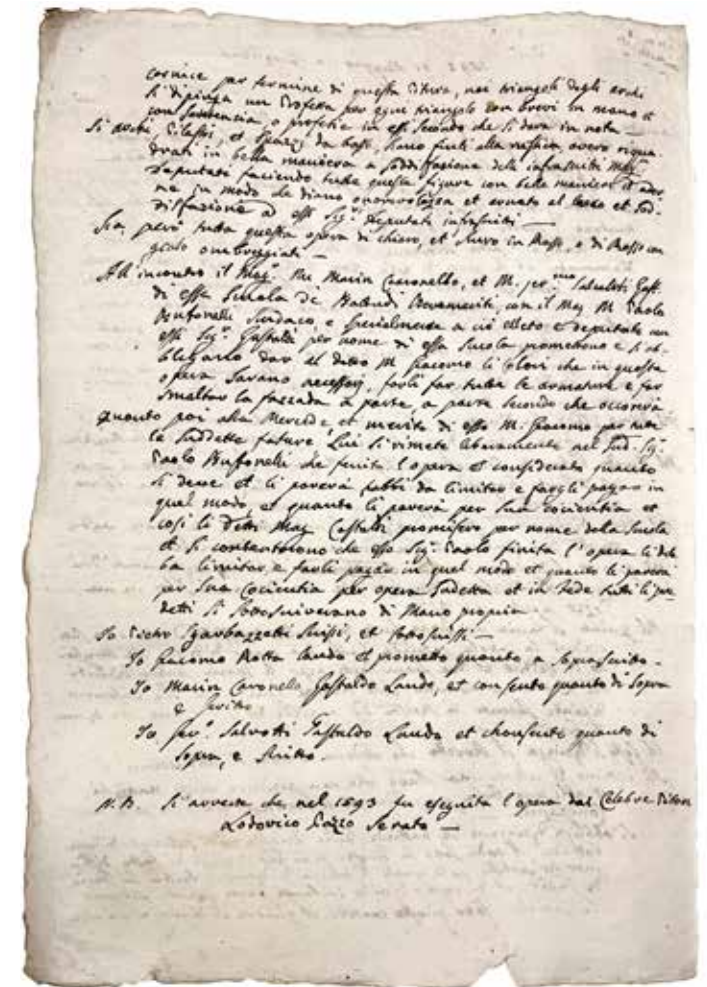 cornice per termine di questa Pitura, nei triangoli degli archi
si dipinga un Profetta per ogni triangolo con brevi in mano et
con sentencia, o profetie in essi secondo che si dara in nota —
Si archi, Pilastri, et spazij da basso, siano finti alla rustica overo riqua-
drati in bella maniera a soddisfazione delli infrascritti Mag.ci
Deputati facendo tutte queste figure con belle maniere et ador-
ne in modo che diano et ornato al et sod-
disfazione ad essi Sig.ri Deputati infrascritti —
Sia però tutta questa opera di chiaro, et scuro in Rosso, e di Rosso con
gialo ombreggiati —
All'incontro il Mag.co Marin Caronello, et M. Salvotti Gast.
di essa Scuola de Battudi Benemeriti, con il Mag. M. Paolo
Bufonelli Sindaco, e specialmente a ciò eletto e deputato con
essi Sig.ri Gastaldi per nome di essa Scuola promettono e si ob-
blegarlo dar al detto M. Giacomo li colori che in questa
opera sarano necessarij, farli far tutte le armature e far
smaltar la fazzada a parte, a parte secondo che occorerà
Quanto poi alla Mercede, et merito di esso M. Giacomo per tutte
le suddette fature, Lui si rimete liberamente nel Sud. Sig.r
Paolo Bufonelli che fenita l'opera et considerato quanto
si deve et li parerà debbi da limitar e fargli pagar in
quel modo, et quanto li parerà per sua cocientia et
così li Detti Mag. Gastaldi promisero per nome della Scuola
et si contentorono che esso Sig.r Paolo finita l'opera li deb-
ba limitar e farli pagar in quel modo et quanto li parerà
per sua Cocientia per opera sudetta et in fede tutti li pre-
detti si sottoscriverano di Mano propria
Io Pietro Sgarbazzetti scrissi, et sottoscrissi —
Io Giacomo Rotta laudo et prometto quanto, a soprascritto.
Io Marin Caronello, Gastaldo Laudo, et consento quanto di sopra
e scritto
Io Salvotti Gastaldo Laudo et chonsento quanto di
sopra, e scritto.
N.B. Si averte che nel 1593 fu eseguita l'opera dal Celebre Pitore
Lodovico Pozzo Serato —